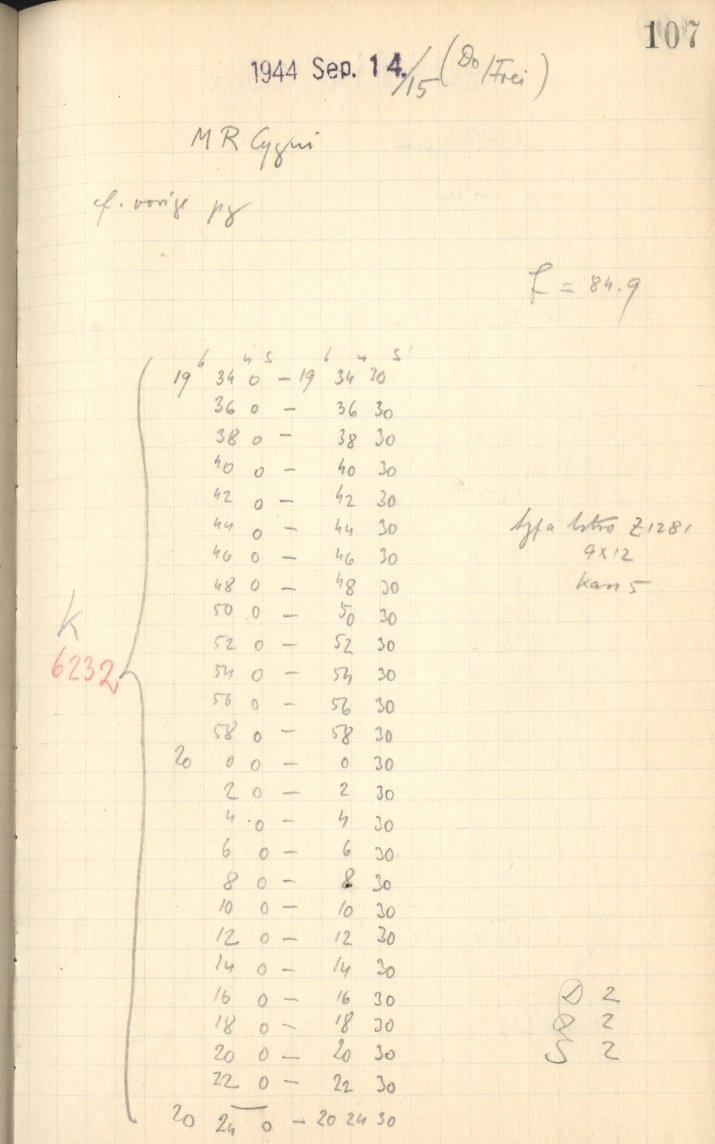 107
1944 Sep. 14./15 (Do/Frei)
MR Cygni
cf. vorige pg
F = 84.9
h m s h m s
19 34 0 – 19 34 30
36 0 – 36 30
38 0 – 38 30
40 0 – 40 30
42 0 – 42 30
44 0 – 44 30
Agfa Astro Z1281
46 0 – 46 30
9x12
48 0 – 48 30
Kass 5
50 0 – 50 30
K
52 0 – 52 30
6232
54 0 – 54 30
56 0 – 56 30
58 0 – 58 30
20 0 0 – 0 30
2 0 – 2 30
4 0 – 4 30
6 0 – 6 30
8 0 – 8 30
10 0 – 10 30
12 0 – 12 30
14 0 – 14 30
16 0 – 16 30
D 2
18 0 – 18 30
2
20 0 – 20 30
S 2
22 0 – 22 30
20 24 0 – 20 24 30